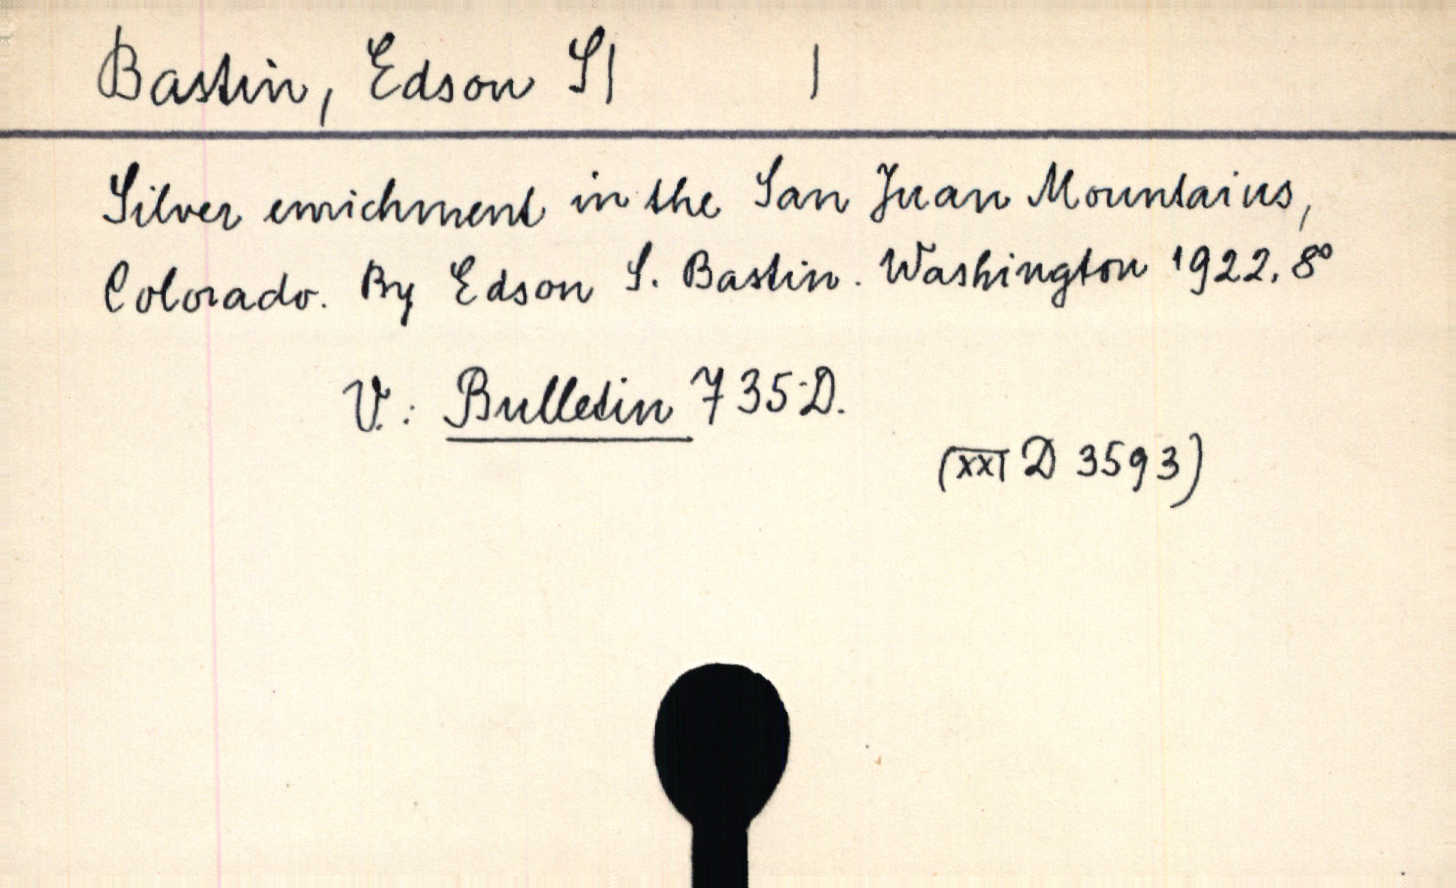 Bastin, Edson S| |
Silver enrichment in the San Juan Mountains,
Colorado. By Edson S. Bastin. Washington 1922. 8°
V.: Bulletin 735-D.
(XXI D 3593)